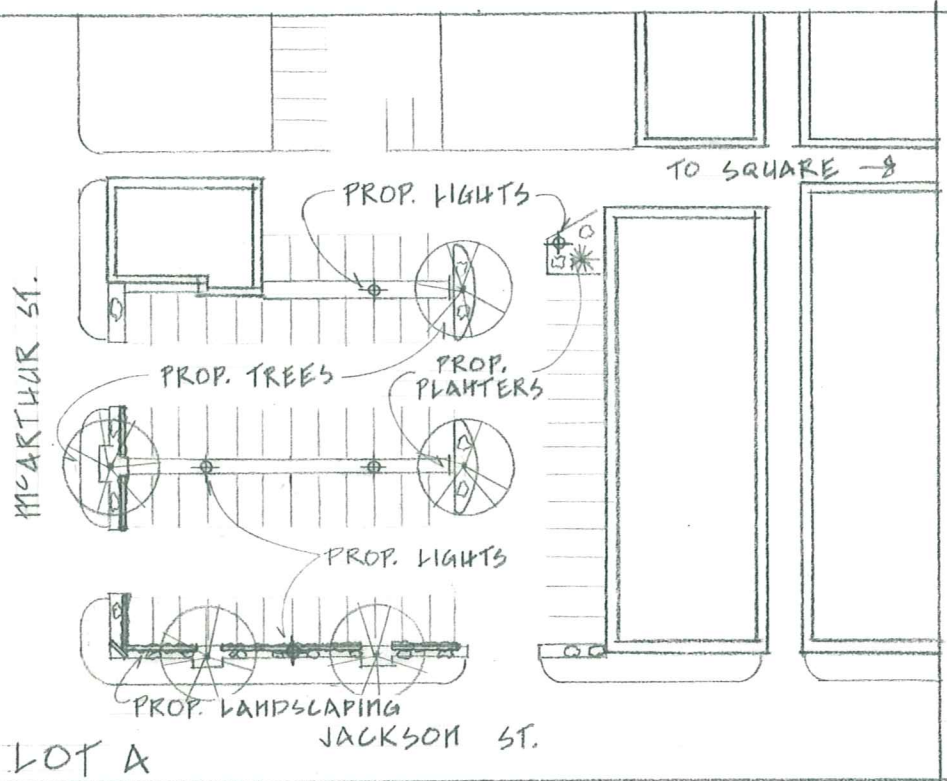 TO SQUARE →
PROP. LIGHTS
McARTHUR ST.
PROP. TREES
PROP.
PLANTERS
PROP. LIGHTS
PROP. LANDSCAPING
JACKSON ST.
LOT A